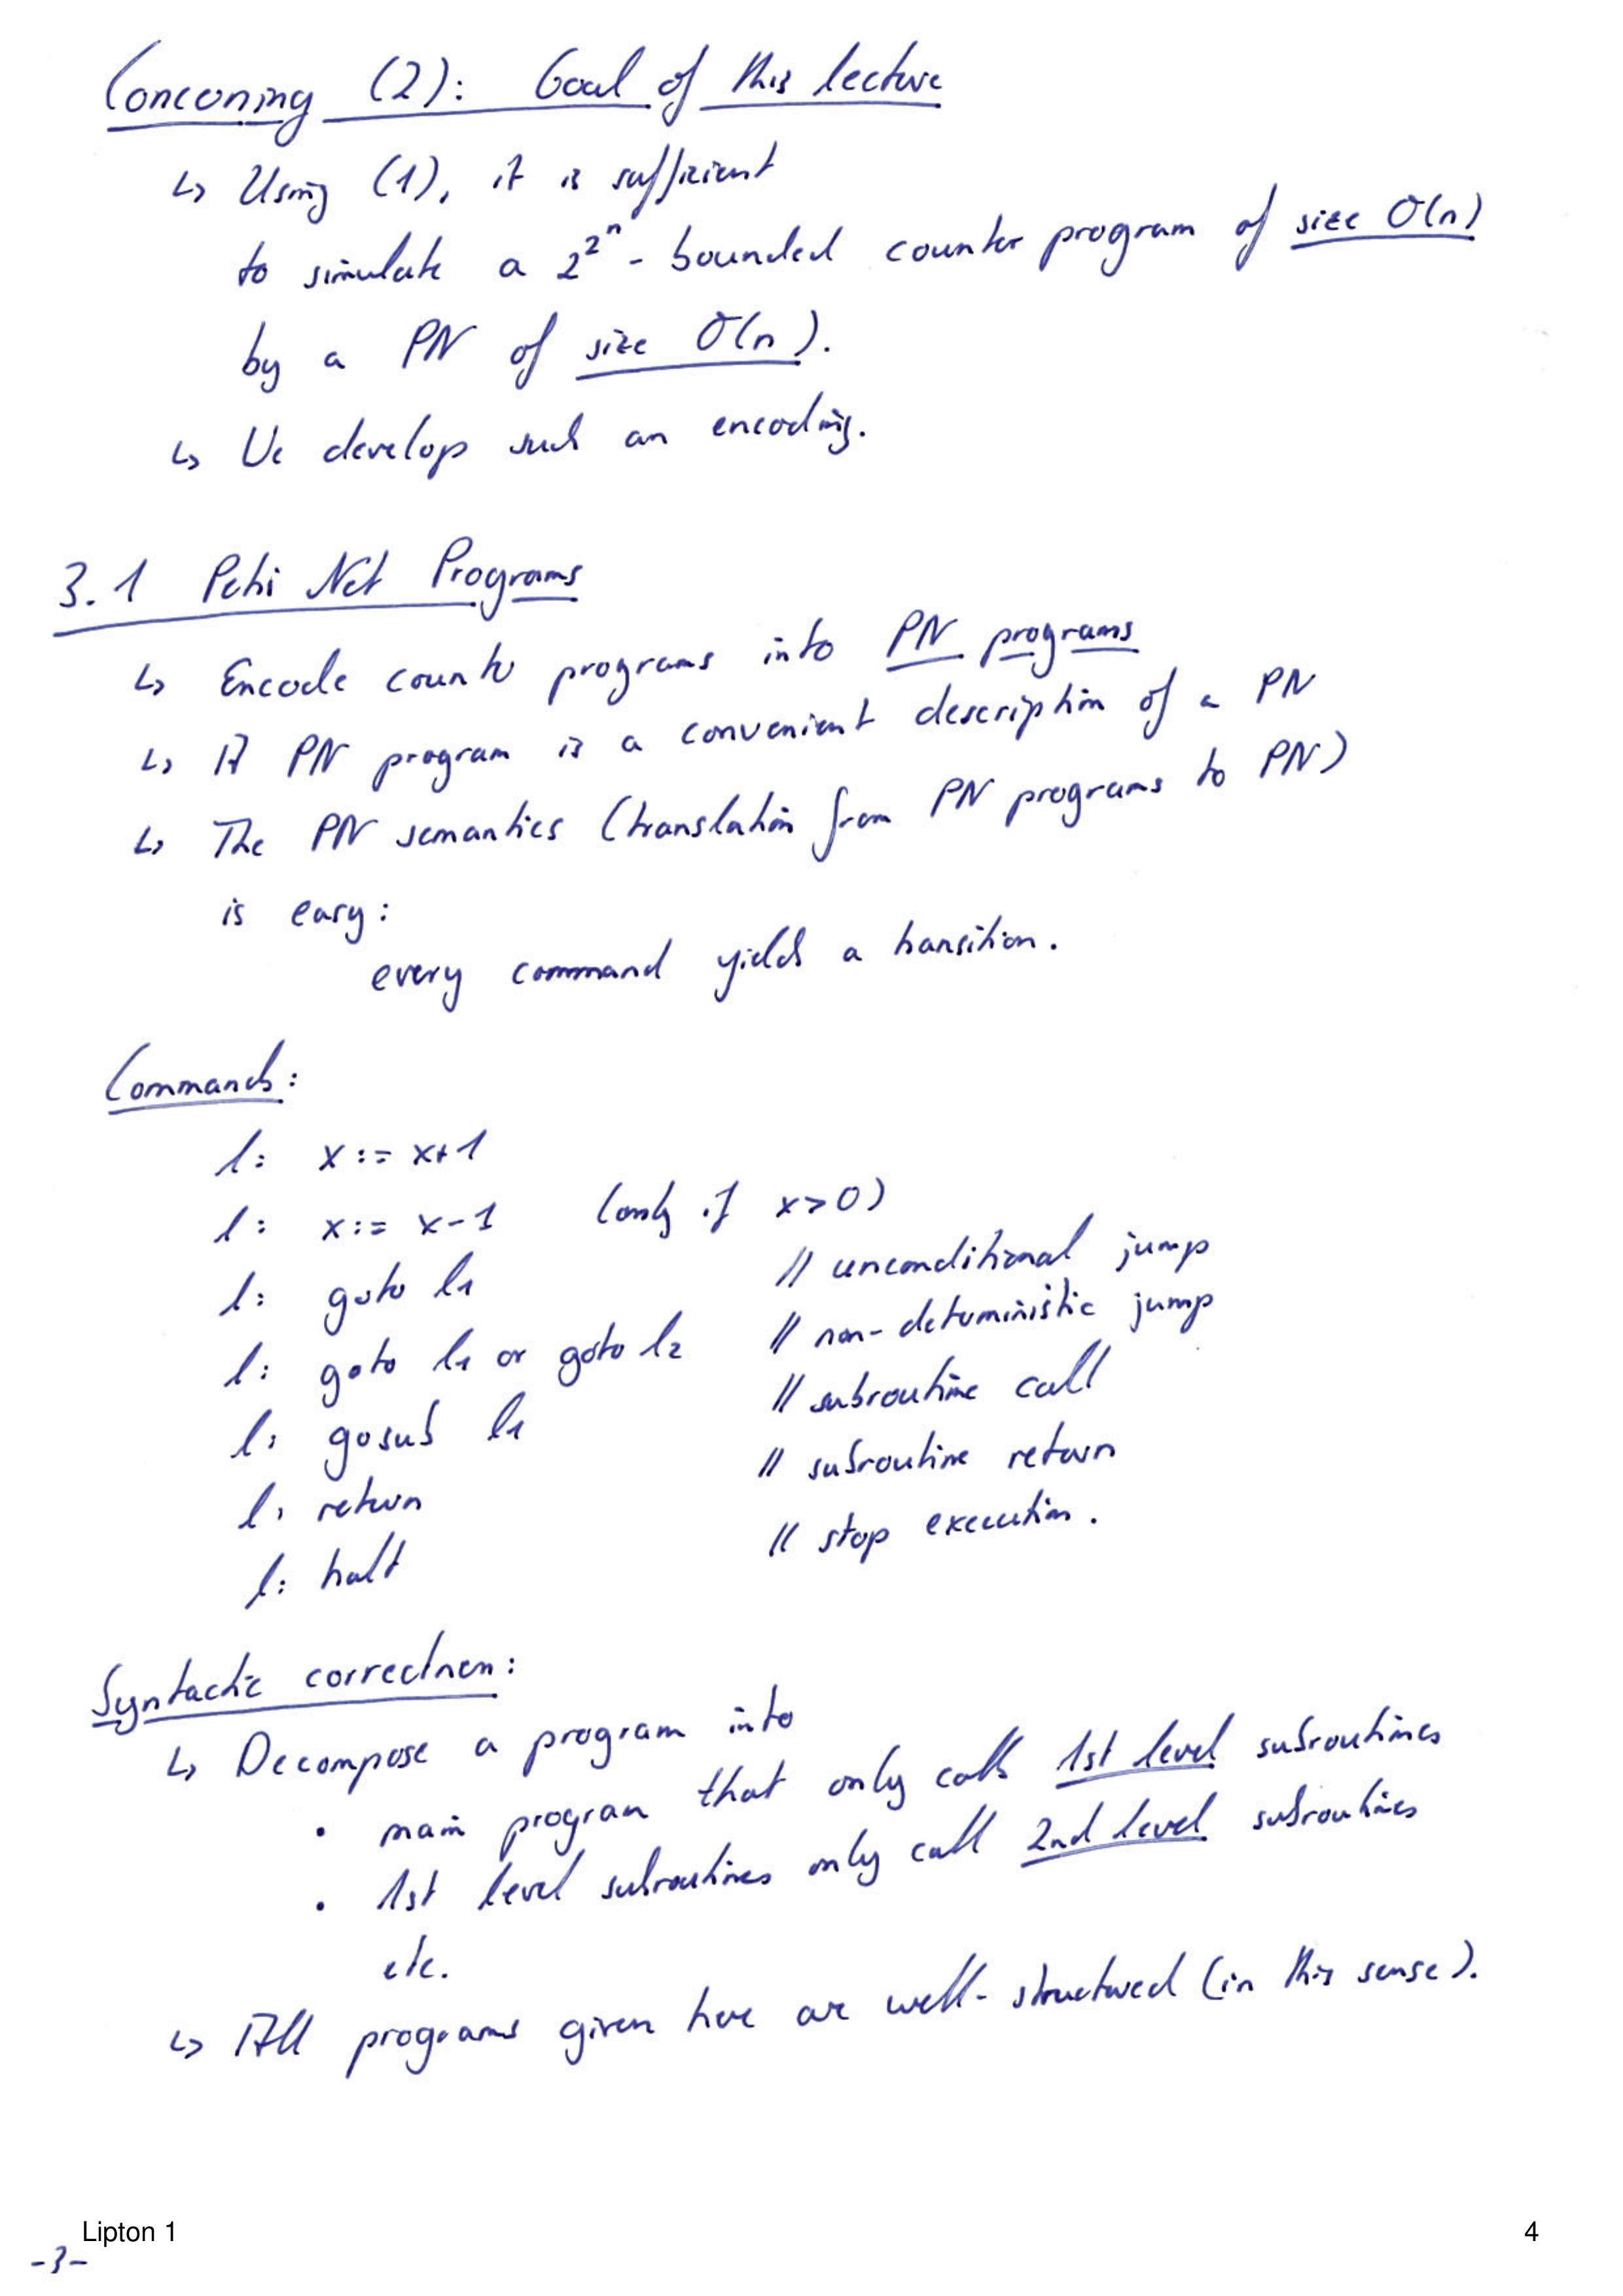 Concerning (2): Goal of this lecture
↳ Using (1), it is sufficient
to simulate a 2^2^n - bounded counter program of size O(n)
by a PN of size O(n).
↳ We develop such an encoding.
3.1 Petri Net Programs
↳ Encode counter programs into PN programs
↳ A PN program is a convenient description of a PN
↳ The PN semantics (translation from PN programs to PN)
is easy:
every command yields a transition.
Commands:
l: x := x+1
l: x := x-1 (only if x>0)
l: goto l1 // unconditional jump
l: goto l1 or goto l2 // non-deterministic jump
l: gosub l1 // subroutine call
l: return // subroutine return
l: halt // stop execution.
Syntactic correctness:
↳ Decompose a program into
• main program that only calls 1st level subroutines
• 1st level subroutines only call 2nd level subroutines
etc.
↳ All programs given here are well-structured (in this sense).
Lipton 1 4
-3-